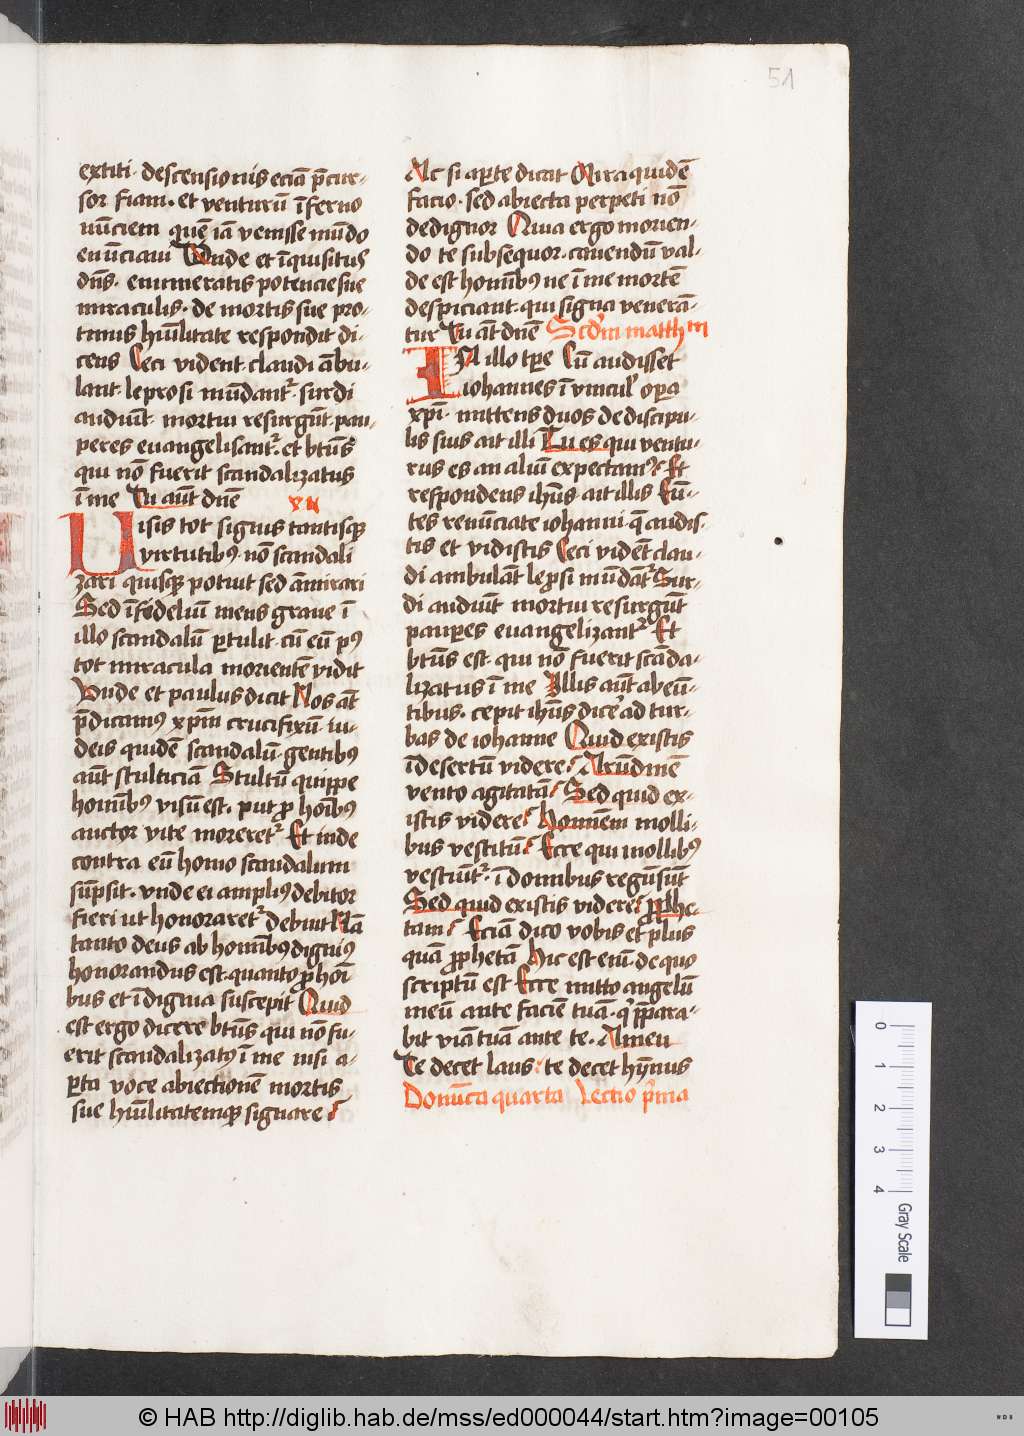 51
extiti · descensurus eciā p̄cur-
sor fiam · et venturū īferno
nūnciem quē iā venisse mūdo
enūnciavi Unde et īquisitus
dn̄s · enumeratis potencie sue
miraculis · de mortis sue pro-
tinus hūilitate respondit di-
cens Ceci vident claudi ābu-
lant · leprosi mūdant᷑ · surdi
audiūt · mortui resurgūt · pau-
peres euangelisant᷑ · et btūs
qui nō fuerit scandalizatus
ī me Tu aūt dnē xii
Uisis tot signis tantisqꝫ
virtutibꝫ nō scandali
zari quisqꝫ potuit sed āmirari
Sed īfideliū mens graue ī
illo scandalū ꝑtulit · cū eū pꝰ
tot miracula morientē vidit
Unde et paulus dicit Nos āt
p̄dicamꝰ xp̄m crucifixū iu-
deis quidē scandalū · gentibꝰ
aūt stulticiā Stultū quippe
homībꝰ visū est · put ꝓ hoībꝰ
auctor vite moreret᷑ Et inde
contra eū homo scandalum
sūpsit · unde ei ampliꝰ debitor
fieri ut honoraret᷑ debuit Nā
tanto deus ab homībꝰ digniꝰ
honorandus est · quanto ꝓ hoī
bus et īdigna suscepit Quid
est ergo dicere btūs qui nō fu-
erit scandalizatꝰ ī me nisi a-
ꝑta voce abiectionē mortis
sue hūilitatemqꝫ signare
Ac si aꝑte dicat Mira quidē
facio · sed abiecta perpeti nō
dedignor Quia ergo morien-
do te subsequor · cauendū val-
de est homībꝰ ne ī me mortē
despiciant · qui signa venerā-
tur Tu āt dnē Scd̄m matthm
In illo tꝑe Cū audisset
iohannes ī vincul᷑ oꝑa
xp̄i · mittens duos de discipu-
lis suis ait illi Tu es qui ventu-
rus es an aliū expectamꝰ Et
respondens ihūs · ait illis Eū-
tes renūnciate iohanni · q̄ audis-
tis et vidistis Ceci vidēt clau-
di ambulāt leprosi mūdāt᷑ Sur-
di audiūt mortui resurgūt
pauꝑes euangelizant᷑ Et
btūs est · qui nō fuerit scāda-
lizatus ī me Illis aūt abeū-
tibus · cepit ihūs dice᷑ ad tur-
bas de iohanne Quid existis
ī desertū videre Arūdinē
vento agitatā Sed quid ex-
istis videre Hominem molli-
bus vestitū Ecce qui mollibꝰ
vestiūt᷑ · ī domibus regū sūt
Sed quid existis videre prophe-
tam Eciā dico vobis et plus
quā prophetā Hic est eniͫ · de quo
scriptū est Ecce mitto angelū
meū ante faciē tuā · q᷑ p̄para-
bit viā tuā ante te · Amen
Te decet laus · te decet hȳnus
Donīca quarta Lectio p᷑ma
0
1
2
3
4
Gray Scale
© HAB http://diglib.hab.de/mss/ed000044/start.htm?image=00105